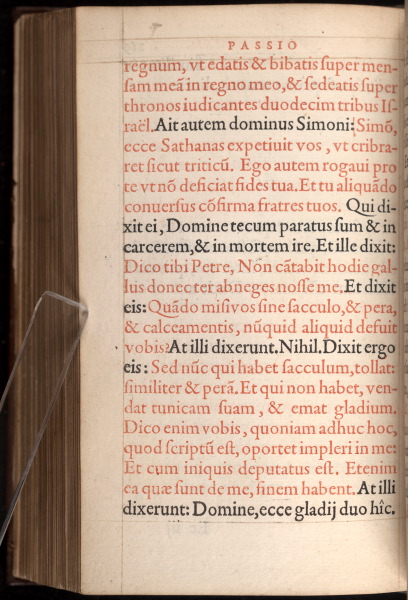 PASSIO
regnum, vt edatis & bibatis super men-
sam meā in regno meo, & sedeatis super
thronos iudicantes duodecim tribus Is-
raël. Ait autem dominus Simoni: Simō,
ecce Sathanas expetiuit vos, vt cribra-
ret sicut triticū. Ego autem rogaui pro
te vt nō deficiat fides tua. Et tu aliquādo
conuersus cōfirma fratres tuos. Qui di-
xit ei, Domine tecum paratus sum & in
carcerem, & in mortem ire. Et ille dixit:
Dico tibi Petre, Non cātabit hodie gal-
lus donec ter abneges nosse me. Et dixit
eis: Quādo misi vos sine sacculo, & pera,
& calceamentis, nūquid aliquid defuit
vobis? At illi dixerunt. Nihil. Dixit ergo
eis: Sed nūc qui habet sacculum, tollat:
similiter & perā. Et qui non habet, ven-
dat tunicam suam, & emat gladium.
Dico enim vobis, quoniam adhuc hoc,
quod scriptū est, oportet impleri in me:
Et cum iniquis deputatus est. Etenim
ea quæ sunt de me, finem habent. At illi
dixerunt: Domine, ecce gladij duo hîc.